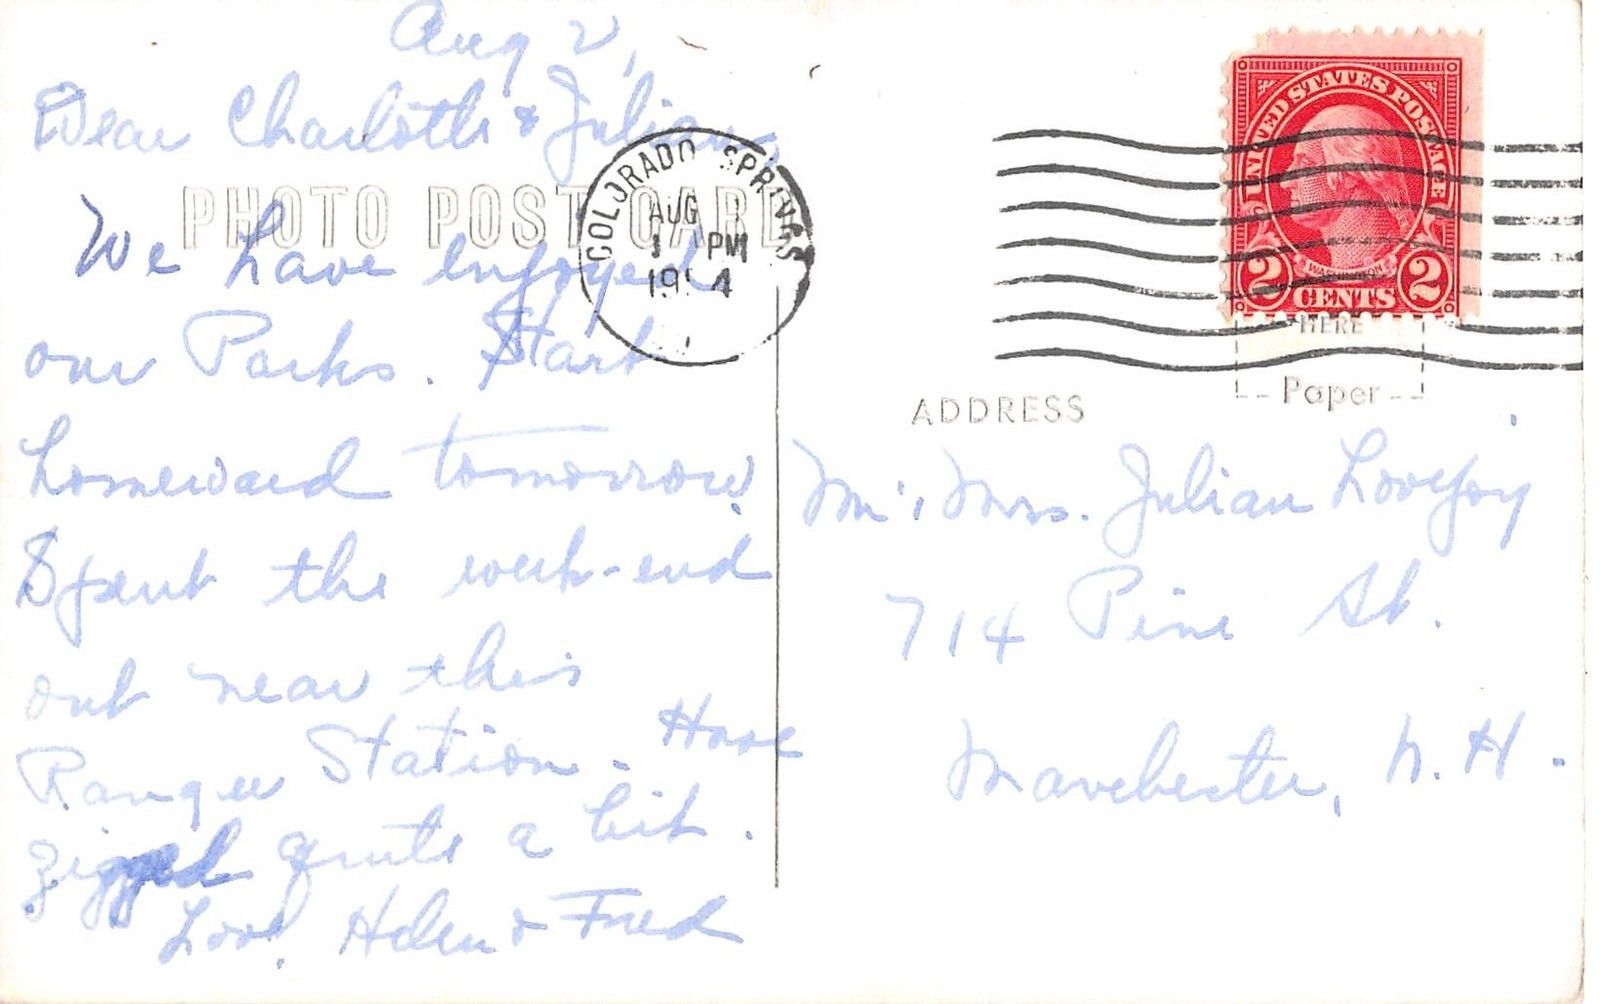 Aug 2,
Dear Charlotte & Julian,
PHOTO POST CARD
We have enjoyed
our Parks. Start
homeward tomorrow.
Spent the week-end
out near this
Ranger Station. Have
zigged quite a bit.
Love, Helen & Fred
COLORADO SPRINGS
AUG
1 PM
19 4
UNITED STATES POSTAGE
WASHINGTON
2 CENTS 2
HERE
Paper
ADDRESS
Mr. Mrs. Julian Lovejoy
714 Pine St.
Manchester, N.H.